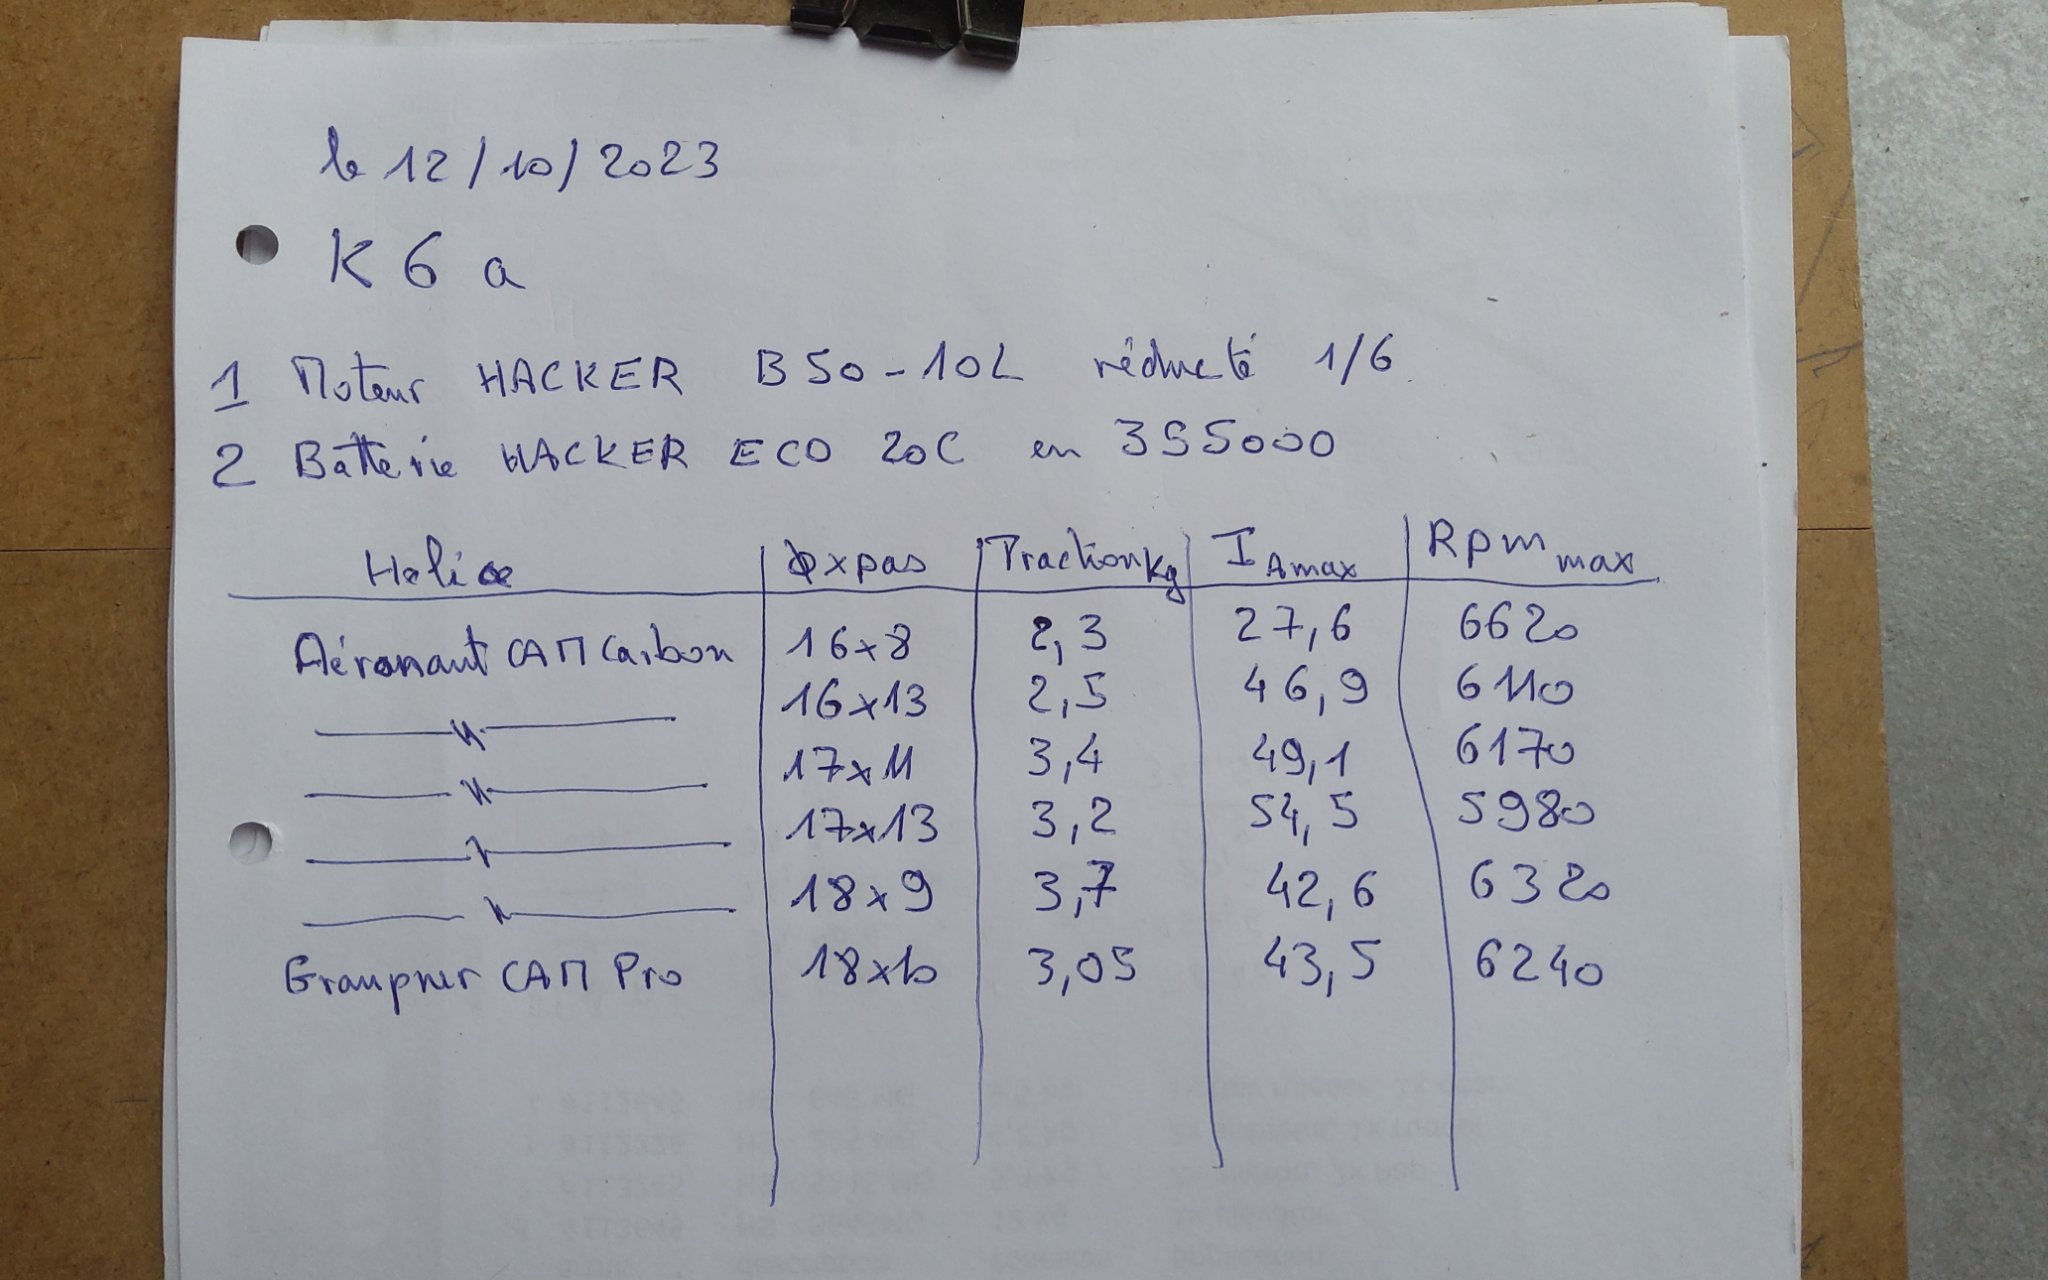 le 12/10/2023
K 6 a
1 Moteur HACKER B50-10L réducté 1/6
2 Batterie HACKER ECO 20C en 3S5000
Hélice ϕxpas Traction Kg I A max Rpm max
Aéronaut CAM Carbon 16x8 2,3 27,6 6620
—"— 16x13 2,5 46,9 6110
—"— 17x11 3,4 49,1 6170
—"— 17x13 3,2 54,5 5980
—"— 18x9 3,7 42,6 6320
Graupner CAM Pro 18x10 3,05 43,5 6240